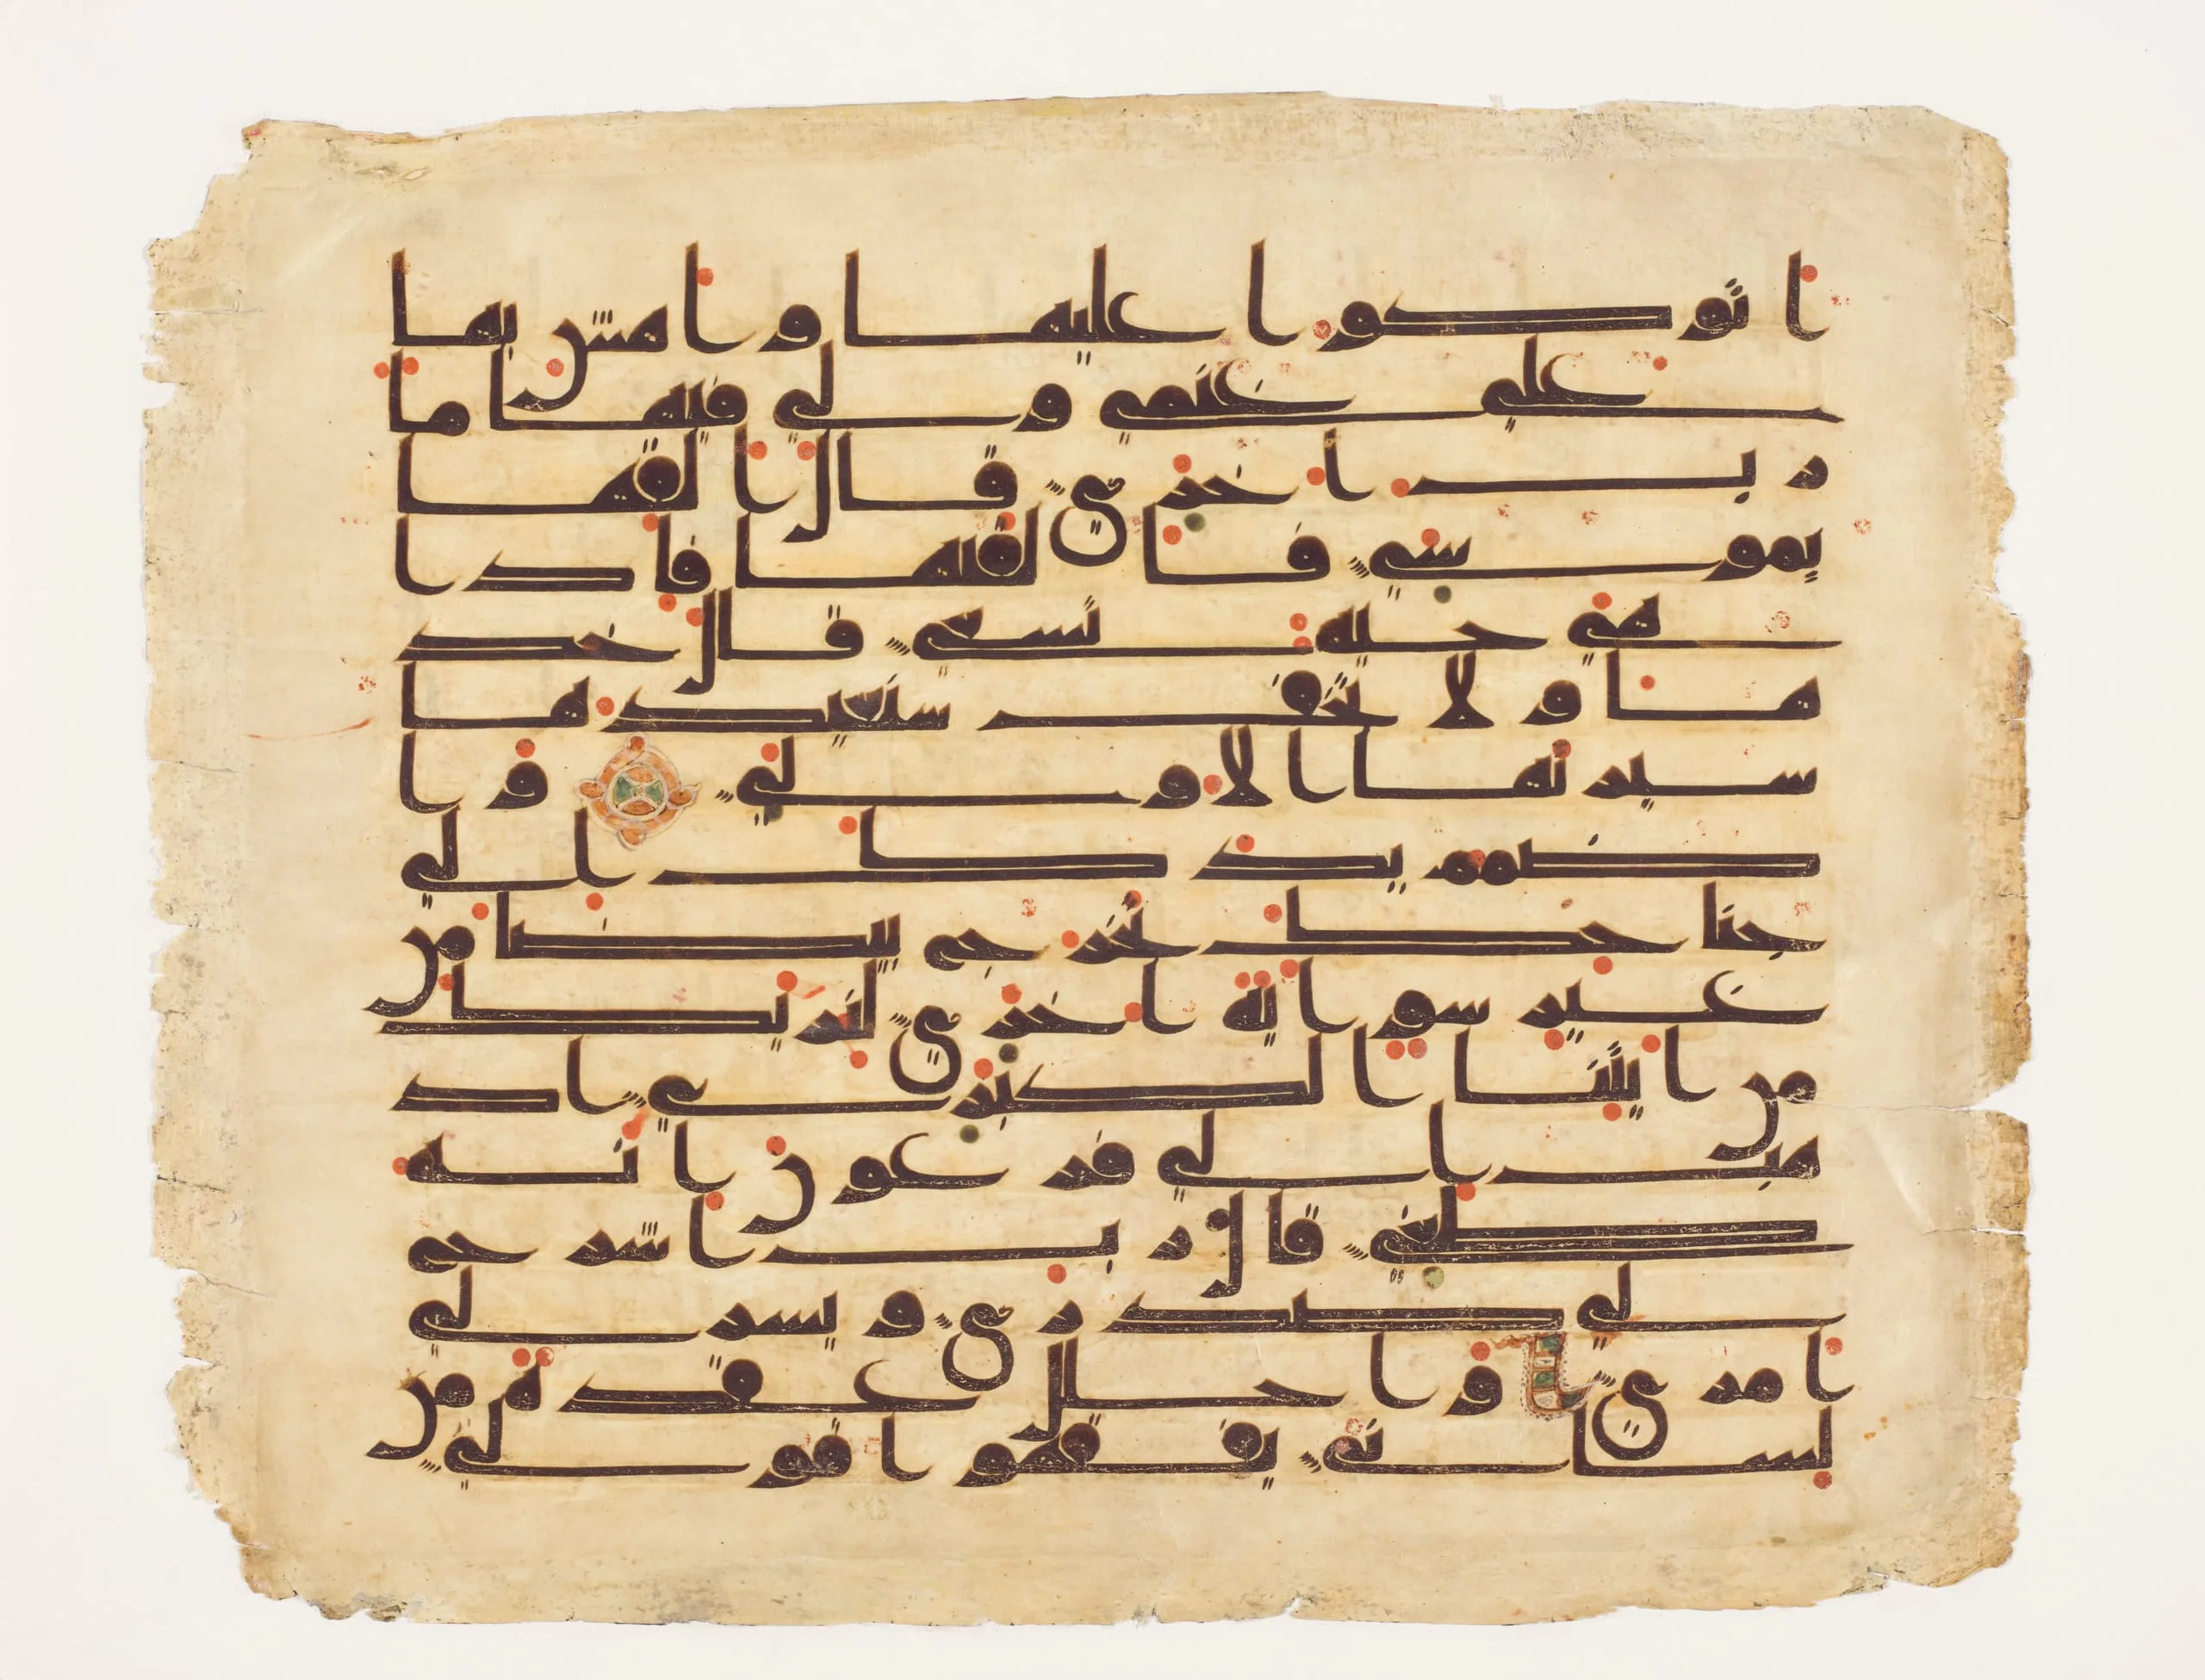 اتوكوا عليها و اهش بها
على غنمي و لي فيها ما
رب اخرى قال القها
يموسى فالقيها فاذا
هي حية تسعى قال خذ
ها و لا تخف سنعيد ها
سيرتها الاولى و ا
ضمم يدك الى
جناحك تخرج بيضا من
غير سو اية اخرى لنريك
من ايتنا الكبرى اذ
هب الى فرعون انه
طغى قال رب اشرح
لي صدري و يسر لي
امري و احلل عقدة من
لساني يفقهوا قولي